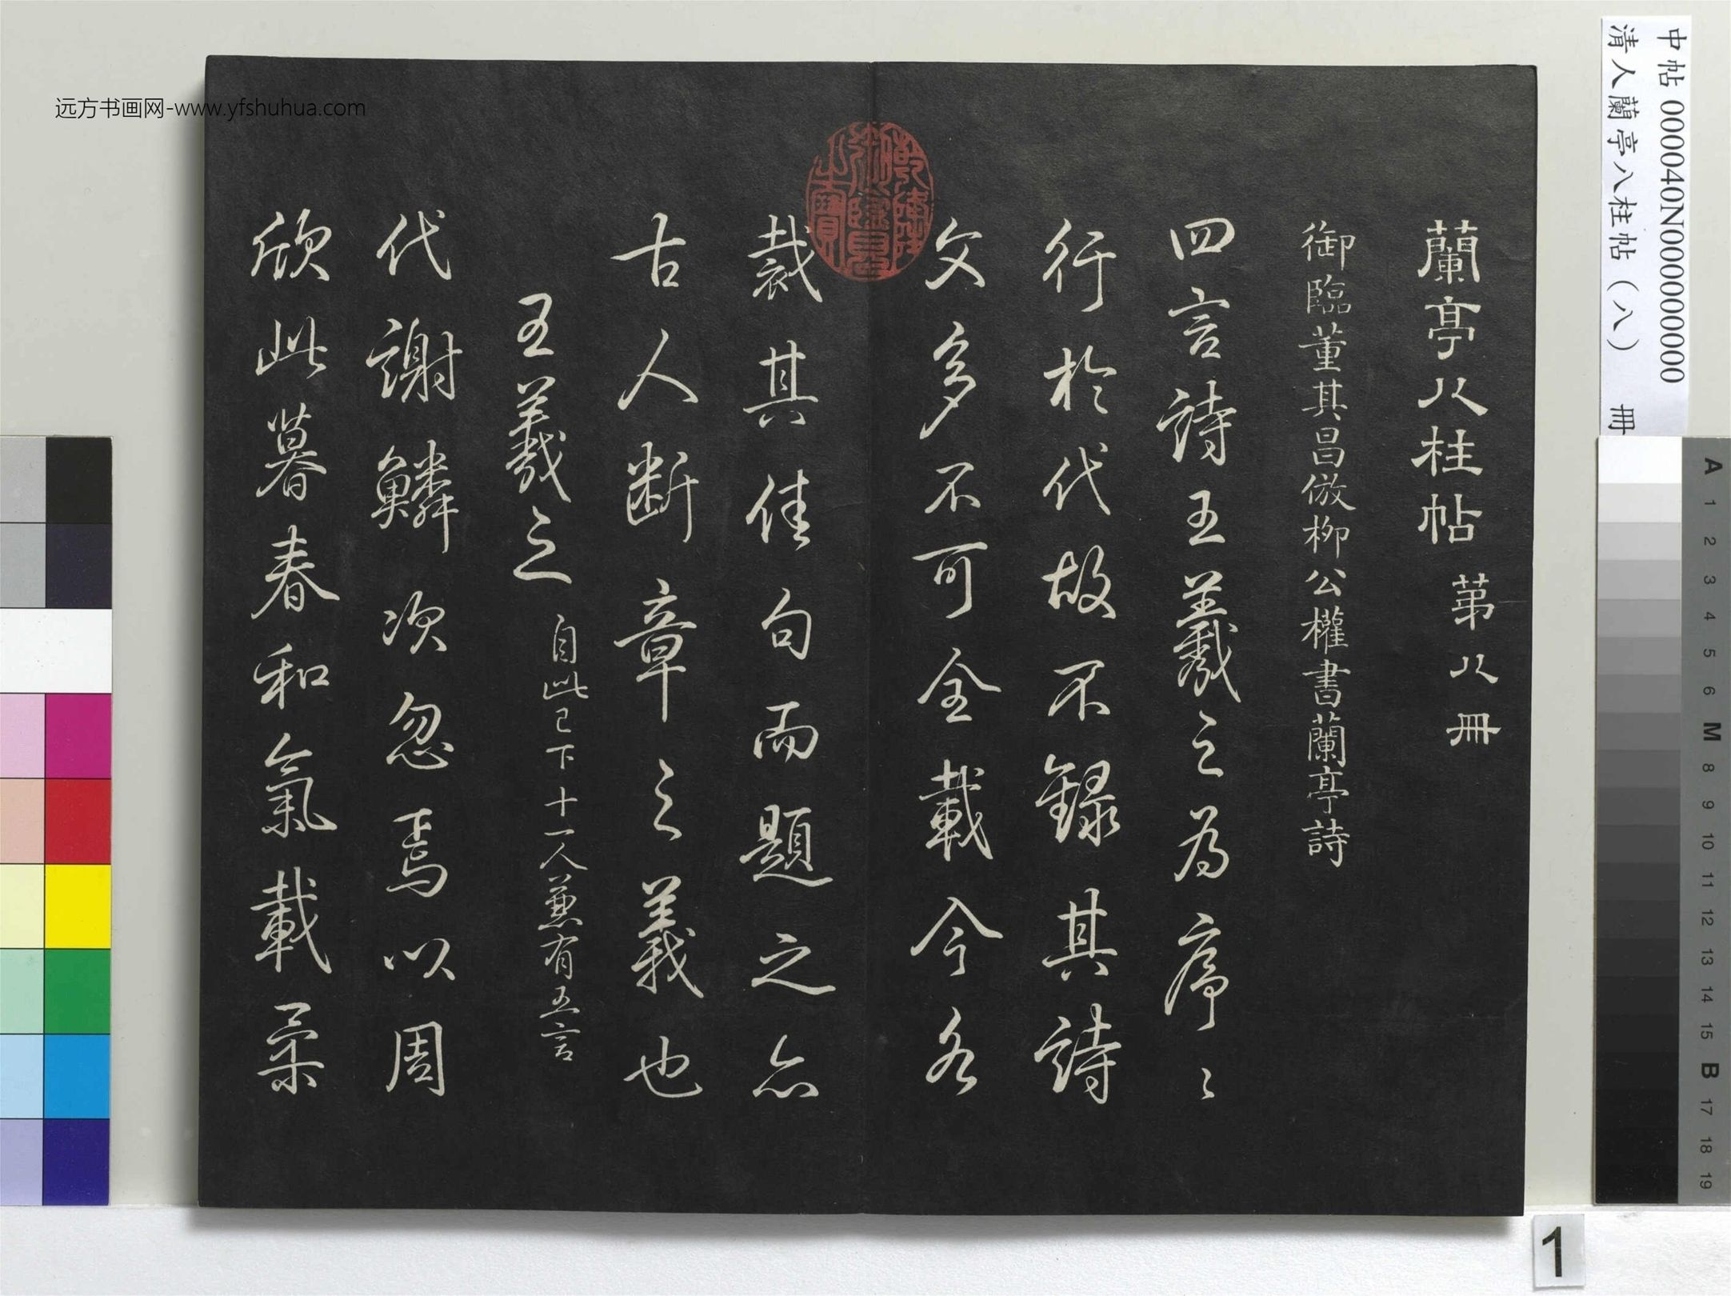 蘭亭八柱帖 第八冊
御臨董其昌倣柳公權書蘭亭詩
四言詩王羲之為序序
行於代故不録其詩
文多不可全載今各
裁其佳句而題之亦
古人断章之義也
王羲之 自此已下十一人兼有五言
代謝鱗次忽焉以周
欣此暮春和氣載柔
乾隆御覽之寶
远方书画网-www.yfshuhua.com
中帖 000040N000000000
清人蘭亭八柱帖（八） 冊
A 1 2 3 4 5 6 M 8 9 10 11 12 13 14 15 B 17 18 19
1